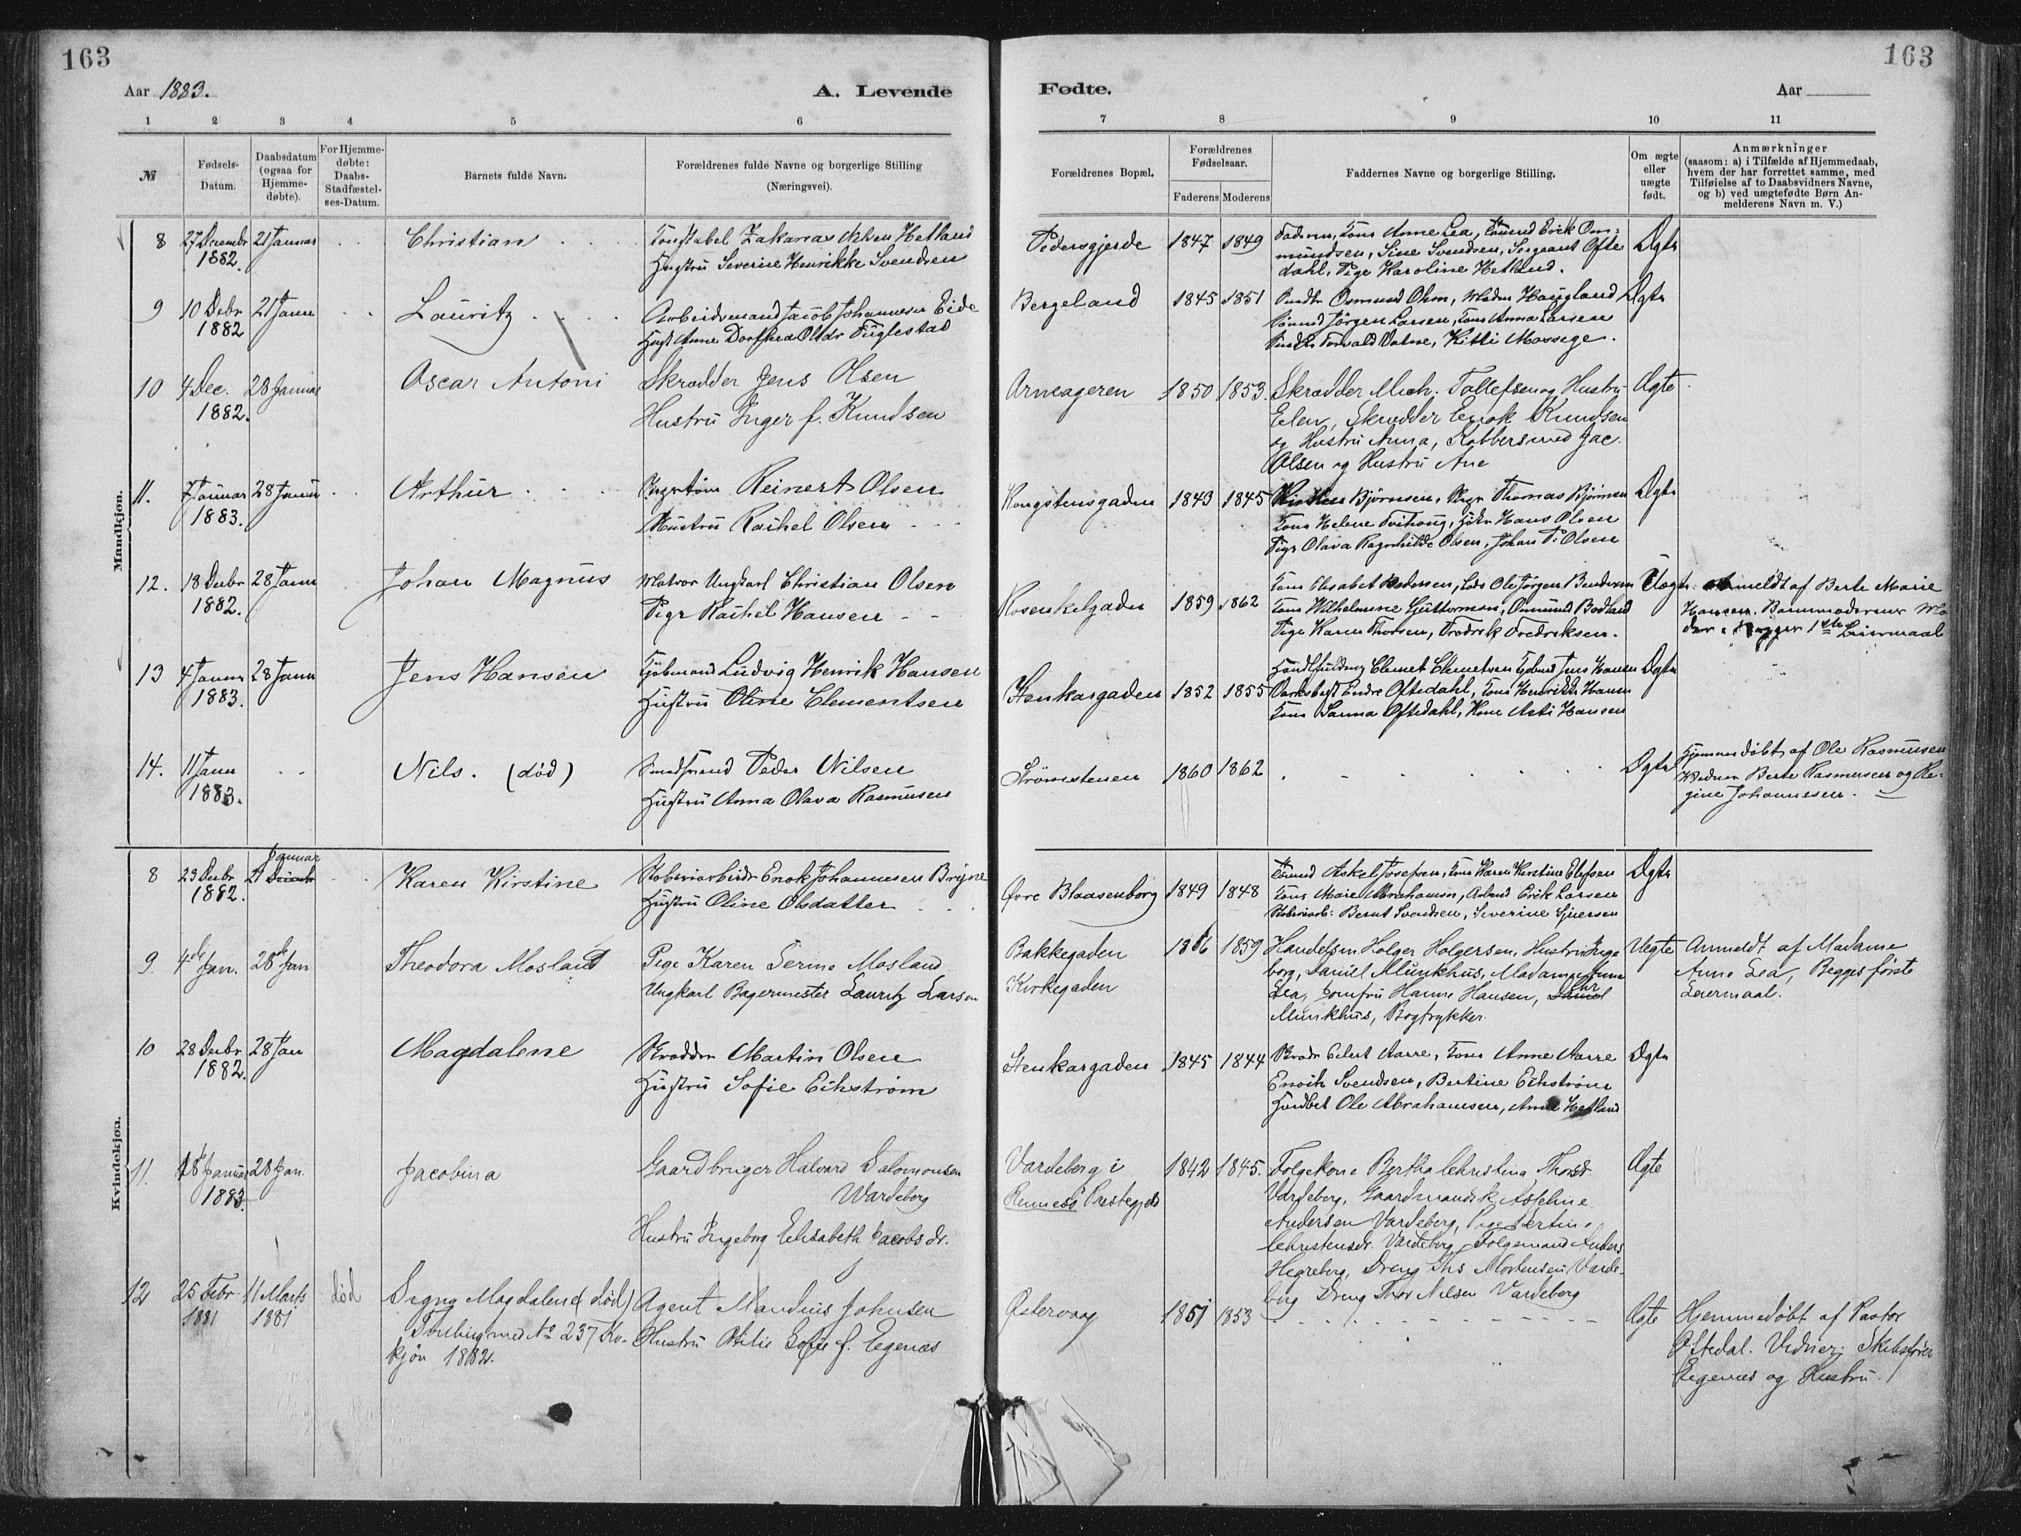 163
163
Aar 1883.
A. Levende
Fødte.
Aar
1 2 3 4 5 6 7 8 9 10 11
№
Fødsels-
Datum.
Daabsdatum
(ogsaa for
Hjemme-
døbte).
For Hjemme-
døbte:
Daabs-
Stadfæstel-
ses-Datum.
Barnets fulde Navn.
Forældrenes fulde Navne og borgerlige Stilling
(Næringsvei).
Forældrenes Bopæl.
Forældrenes
Fødselsaar.
Faderens Moderens
Faddernes Navne og borgerlige Stilling.
Om ægte
eller
uægte
født.
Anmærkninger
(saasom: a) i Tilfælde af Hjemmedaab,
hvem der har forrettet samme, med
Tilføielse af to Daabsvidners Navne,
og b) ved uægtefødte Børn An-
melderens Navn m. V.)
Mandkjøn.
8 27 Decembr 21 Januar
1882.
Christian
Hetland
Hustru Severine Henrikke Svendsen
Pedersgjerde 1847 1849
Anne Lea, Erik Om-
mundsen, Sine Svendsen, Sergeant Ofte
dahl, Pige Karoline Hetland.
Ægte
9 10 Debr 21 Janu
1882
Lauritz
Arbeidsmand Jacob Johannesen Eide
Hust Anne Dorthea Olsdr Fuglestad
Bergeland 1845 1851
Osmund Ohm, Haugland
Jørgen Larsen, Anna Larsen
Torvald Vatne, Kitti Mossege.
Ægte
10 4 Dec. 28 Januar
1882.
Oscar Antoni
Skrædder Jens Olsen
Hustru Inger f. Knudsen
Arneageren 1850 1853.
Skrædder Mich. Tollefsen og Hustru
Elen, Skrædder Enok Knudsen
og Hustru Anna, Kobbersmed Jac.
Olsen og Hustru Ane
Ægte
11. 7 Januar 28 Janur
1883.
Arthur
Reinert Olsen
Hustru Rachel Olsen
Kongstensgaden 1843 1845
Bjørnsen, Thomas Bjørnsen
Helene Tveihoug, Hans Olsen
Pige Olava Ragnhilde Olsen, Johan P. Olsen
Ægte
12. 18 Debr 28 Janu
1882.
Johan Magnus
Matros Ungkarl Christian Olsen
Pige Rachel Hansen
Rosenkelgaden 1859 1862
Elisabet Pedersen, Lods Ole Jørgen Bendixen
Wilhelmine Guttormsen, Osmund Bodland
Pige Karen Thorsen, Fredrik Fredriksen.
Uægte
Anmeldt af Berte Marie
Hansen. Barnmoderens Mo
der. Begges 1ste Leiermaal
13 4 Janur 28 Janu
1883.
Jens Hansen
Kjøbmand Ludvig Henrik Hansen
Hustru Oline Clementsen
Stenkargaden 1852 1855
Clemet Clemetsen Jens Hansen
Endre Oftedahl, Henrikke Hansen
Sanna Oftedahl, Kone Asti Hansen
Ægte
14. 11 Janu
1883.
Nils. (død)
Peder Nilsen
Hustru Anna Olava Rasmusen
Strømstenen 1860 1862
Ægte
Hjemmedøbt af Ole Rasmusen
Vidner Berte Rasmusen og Re-
gine Johannesen.
Kvindekjøn.
8 23 Debr 21 Januar
1882.
Karen Kirstine
Enok Johannesen Bryne
Hustru Oline Olsdatter
Øvre Blaasenborg 1849 1848
Askel Josefsen, Karen Kirstine Elefsen
Maren Abrahamsen, Erik Larsen
Bernt Svendsen, Severine Sjursen
Ægte
9 4de Jan. 28de Jan
Theodora Mosland
Pige Karen Serine Mosland
Ungkarl Bagermester Lauritz Larsen
Bakkegaden
Kirkegaden
1859
Handelsm. Holger Holgersen, Hustru Inge
borg, Daniel Munkhus, Madame Anne
Lea, Jomfru Hanne Hansen,
Munkhus, Bogtrykker.
Uegte
Anmeldt af Madame
Anne Lea, Begges første
Leiermaal.
10 28 Debr 28 Jan
1882.
Magdalene
Skrædder Martin Olsen
Hustru Sofie Eikstrøm
Stenkargaden 1845 1844
Eilert Aarre, Anne Aarre
Enoch Svendsen, Bertine Eikstrøm
Ole Abrahamsen, Anna Hetland
Ægte
11. 18 Januar 28 Jan.
1883.
Jacobina
Gaardbruger Halvard Salomonsen
Vardeberg
Hustru Ingeborg Elisabeth Jacobsdr.
Vardeberg i
Rennesø Præstegjeld
1842 1845.
Følgekone Bertha Christina Thorsdr
Vardeberg, Gaardmandsk Aseline
Andersen Vardeberg, Pige Bertine
Christensdr. Vardeberg, Følgemand Anders
Hegreberg, Dreng Ths Mortensen Varde-
berg Dreng Thor Nilsen Vardeberg
Ægte
12 25 Febr 11 Marts død
1881 1881
Signy Magdalene (død)
Tvilling med No 237 Kv.
kjøn 1882.
Agent Mandius Johnsen
Hustru Otilie Sofie f. Egenæs
Østervaag 1851 1853
Ægte
Hjemmedøbt af Pastor
Oftedal. Vidner: Skibsfører
Egenæs og Hustru.